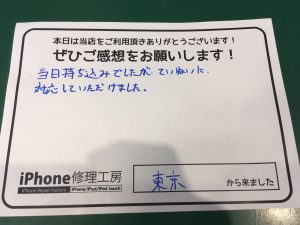 本日は当店をご利用頂きありがとうございます!
ぜひご感想をお願いします!
当日持ち込みでしたが、ていねいに
対応していただけました。
iPhone修理工房
iPhone Repair Factory
iPhone/iPad/iPod touch
東京
から来ました